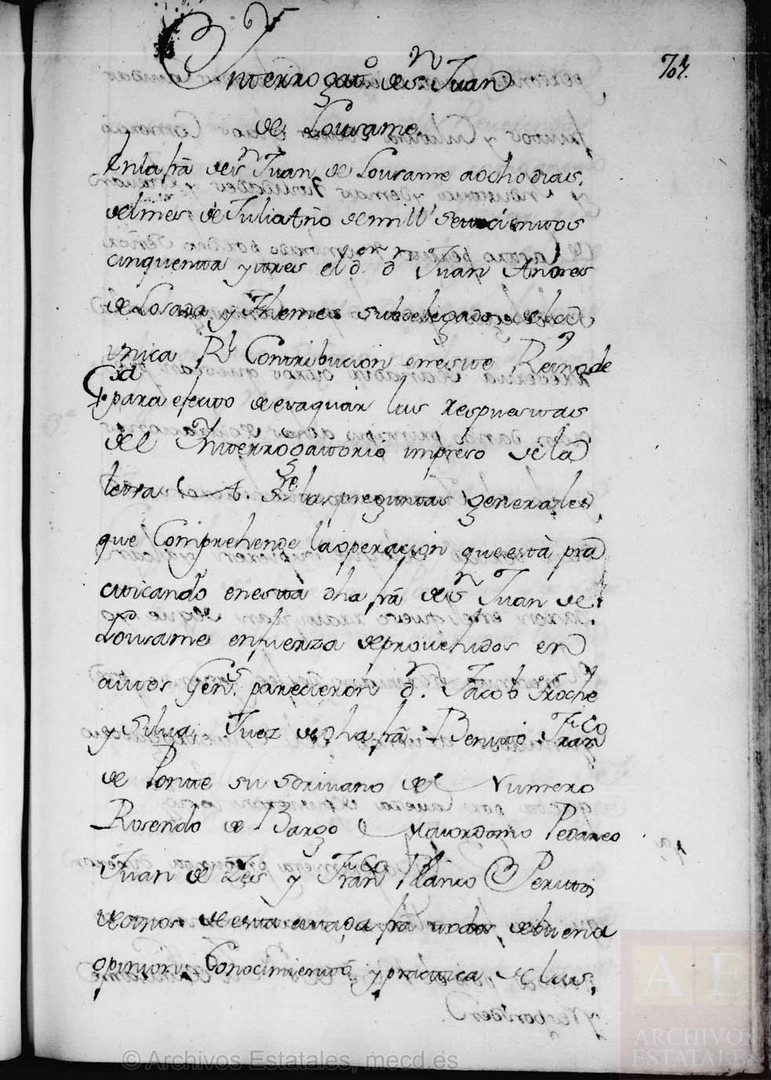 707.
Interrogato de Sn. Juan
de Lousame
En la fra de Sn Juan de Lousame a ocho dias
del mes de Julio año de mill setecientos
cinquenta y tres el Sor Dn Juan Andres
de Losada y Themes subdelegado de la
unica Rl Contribucion en este Reino de
Gxa para efecto de evaquar las respuestas
de el Interrogatorio impreso de la
letra A. sre las preguntas generales
que Comprehende la operacion que está pra
cticando en esta dha fra de Sn Juan de
Lousame en fuerza de provehidos en
autos Gens. parecieron Dn. Jacob
y Silva Juez de dha fra Benito Franco
de Ponte su Scrivano de Numero
Rosendo de Barzo Maiordomo Pedaneo
Juan de Leis y Franco Blanco Peritos
vecinos de esta citada fra todos de buena
opinion Conocimiento y practica de las
© Archivos Estatales, mecd.es
AE
ARCHIVOS
ESTATALES